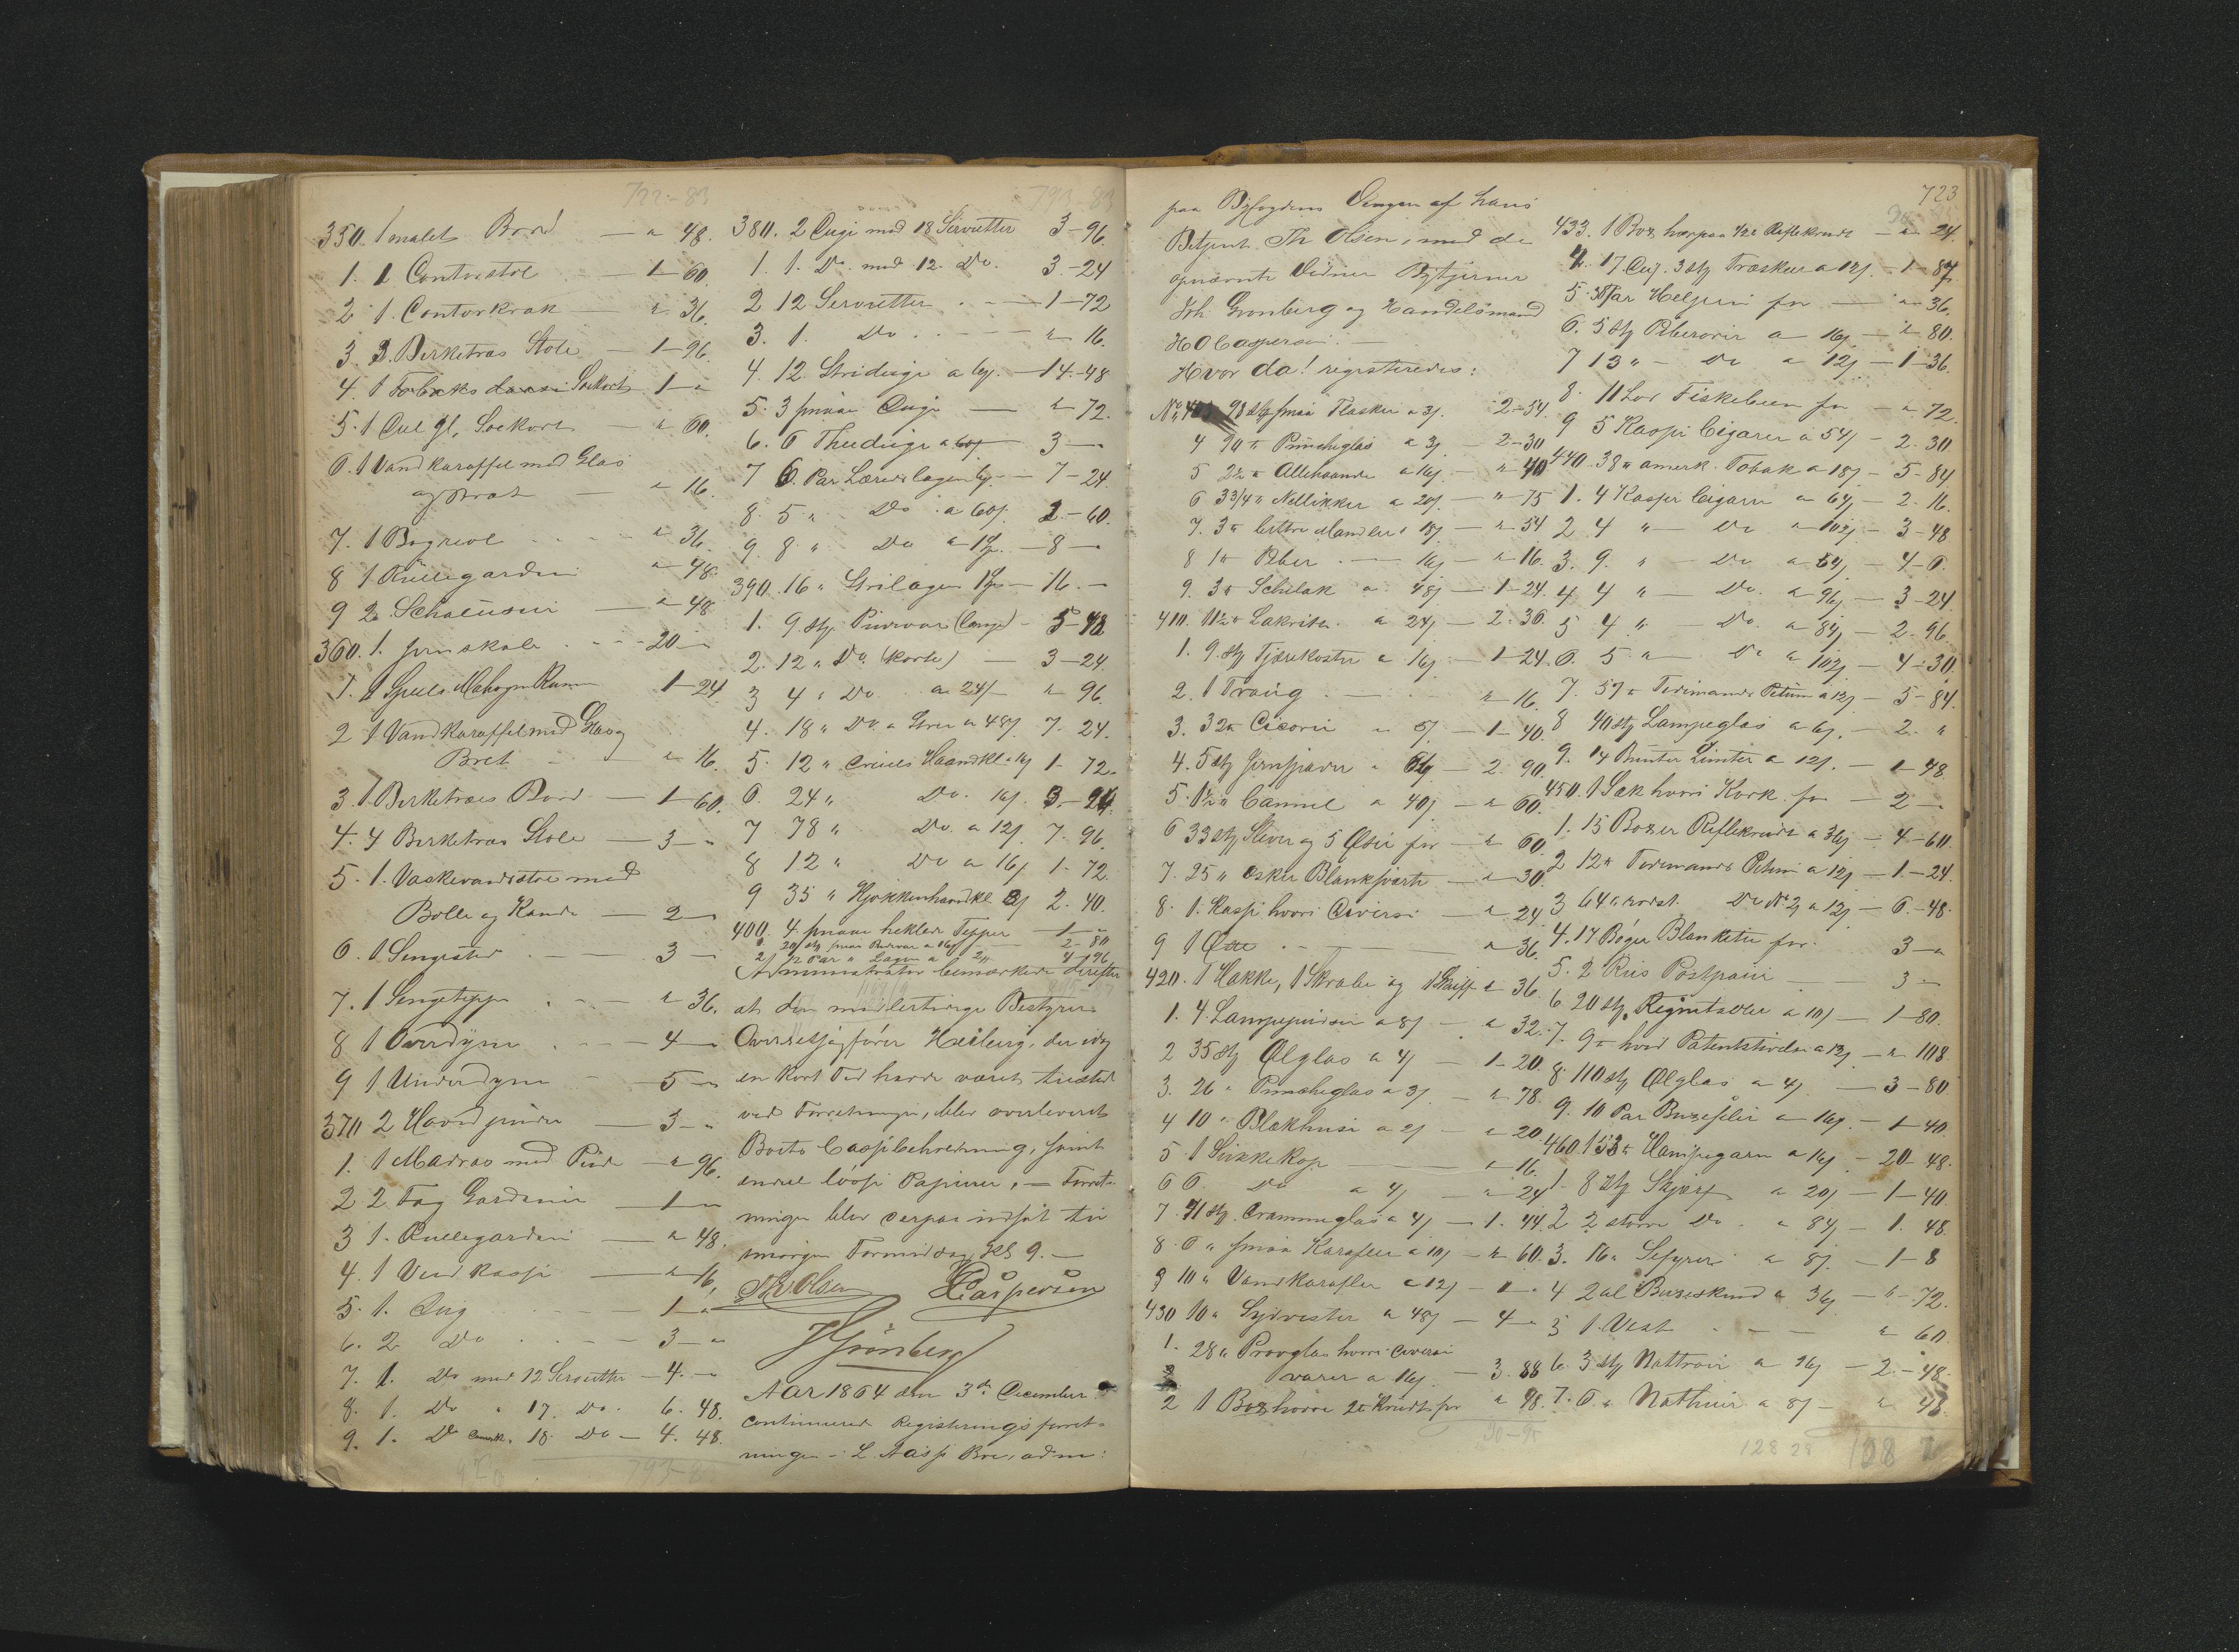 722-83
350. 1 malet Bord — " 48.
1. 1 Contorstol — 1-60.
2 1. Contorkrak — " 36.
3 3. Birketræs Stole — 1-96.
4. 1 Tobaks Saekort 1-"
5. 1 Cul gl. Soekort — " 60.
6. 1 Vandkaraffel med Glas
og Bret — " 16.
7. 1 Bogreol " 36.
8 1 Rullegardin " 48.
9 2 — " 48
360. 1. Jernskab — 20-"
1. 1 Speil i Mahogni Ramme 1-24.
2 1 Vandkaraffel med Glas og
Bret — " 16.
3 1. Birketræes Bord — 1-60.
4. 4 Birketræs Stole — 3-"
5. 1. Vaskevandsstol med
Bolle og Kande — 2-"
6. 1 Sengested — 3-"
7. 1 Sengeteppe — " 36.
8 1 Overdyne — 4-"
9 1 Underdyne — 5-"
370 2 Hovedpuder — 3-"
1. 1 Madras med Pude — " 96.
2 2 Fag Gardiner — 1-"
3 1. Rullegardin — " 48.
4. 1 Ved Kasse — " 16.
5. 1. Dug — 1-"
6. 2 Do — 3-"
7. 1. Do med 12 Servietter — 4.-"
8. 1. Do " 17. Do. 6. 48.
9. 1. Do 18 Do — 4. 48.
793-83
793-83
380. 2 Duge med 18 Servietter 3-96.
1. 1. Do. med 12. Do. 3.-24
2 12 Servietter — 1-72
3. 1. Do — " 16.
4. 12. Striduge a — 14.-48
5. 3 smaae Duge — " 72.
6. 6 Theeduge a 60 3-"
7 6. Par Lærredslagen — 7-24.
8. 5 " Do a 60 3-60.
9. 8 " Do a — 8-"
390. 16 " Strilagen — 16.-
1. 9 Stk. Pudevar (lange) - 5-48
2. 12 " Do. (korte) — 3-24.
3 4 " Do. a 24 — " 96.
4. 18 " Do. a 48 7. 24.
5. 12 " Haandkl. a 16 1-72.
6. 24 " Do. 16 3.-24
7 78 " Do. a 12 7. 96.
8 12 " Do a 16 1-72.
9 35 " Kjøkkenhaandkl. 8 2. 40.
400. 4. smaae heklede Tepper — 1-"
1 20 Stk smaa Pudevar a 16 2-80
2 Par " Lagen a 4-96
Administrator bemærkede derefter
at den midlertidige Bestyrer
Overretssagfører Heiberg, der idag
en kort Tid havde været tilstede
ved Forretningen, blev overleveret
Boets Cassebeholdning, samt
endeel løse Papirer, — Forret-
ningen blev derpaa udsat til
imorgen Formiddag Kl 9. —
Th Olsen H Caspersen
J Grønberg
Aar 1864 den 3de December
continueredes Registreringsforret-
ningen i L. Aass Bo, adm:
723
paa Byfogdens Vegne af hans
Betjent Th Olsen, med de
opnævnte Vidner Bytjener
Joh Grønberg og Handelsmand
H O Caspersen. —
Hvor da! registreredes:
No 403 98 Stk smaa Flasker a 3 2-54.
4 90 " Puncheglas a 3 — 2-30
5 2½ " Allehaande a 16 — " 40
6 3 3/4 " Nellikker a 20 — " 75
7. 3 " bittre Mandler 18 — " 54
8 1 " Peber — 16 — " 16.
9. 3 " Schilak a 48 — 1-24.
410. 11½ " Lakrits a 24 — 2. 36.
1. 9 Stk Tjærekoster a 16 — 1-24.
2. 1 Traug — " 16.
3. 32 " Cicorie — 1-40
4. 5 Stk Jernspader — 2. 90.
5. 1½ " Cannel a 40 — " 60.
6 33 Stk og 5 Øser for — " 60.
7. 25 " Esker Blanksverte — " 30.
8. 1. Kasse hvori Diverse — " 24
9 1 Øxe — " 36.
420. 1 Hakke, 1 Skrabe og 1 " 36
1. 4. Lampepudser a 8 — " 32.
2 35 Stk Ølglas a 4 — 1-20.
3. 26 " Puncheglas a 3 — " 78.
4 10 " Blækhuse a 2 — " 20
5 1 Sukkekop — " 16.
6 6. Do a 4 — " 24
7. 41 Stk. Drammeglas a 4 — 1. 44.
8. 6 " smaa Karafler a 10 — " 60.
9 10 " Vandkarafler a 12 — 1-"
430 10 " Sydvester a 48 — 4-"
1. 28 " Prøveglas hvori diverse
varer a 16 — 3. 88
2 1 Box hvori 2 " Krudt for " 98.
30-95
433. 1 Box Riflekrudt — " 24.
4. 17 3 Stk Træskeer a 12 — 1-87
5. Par for — " 36.
6. 5 Stk a 16 — " 80.
7 13 " — Do a 12 — 1-36.
8. 11 for — " 72.
9 5 Kasser Cigarer a 54 — 2. 30
440. 38 " amerk. Tobak a 18 — 5-84
1. 4 Kasser Cigarer a 64 — 2. 16.
2 4 " — Do a 102 — 3-48
3. 9. " — Do a 54 — 4-6.
4 4 " — Do. a 96 — 3-24
5 4 " — Do. a 84 — 2. 96.
6. 5 " — Do a 102 — 4-30
7. 57 " Tidemands Petum a 12 — 5-84.
8 40 Stk Lampeglas a 6 — 2. "
9. 14 Bunter Lunter a 12 — 1-48.
450. 1 Sæk hvori Kork for — 2-"
1. 15 Boxer Riflekrudt a 36 — 4-60.
2 12 " Tidemands Petum a 12 — 1.-24
3 64 " Do No 2 a 12 — 6.-48.
4. 17 Bøger Blanketter for 3-"
5. 2 Riis Postpapir — 3-"
6. 20 Stk. a 10 — 1-80.
7. 9 " Patentstivelse a 12 — " 108.
8. 110 Stk Ølglas a 4 — 3-80
9. 10 Par Buxeseler a 16 — 1-40
460. 153 " Hampegarn a 16 — 20-48.
1. 8 Stk Skjerf a 20 — 1-40
2 2 større Do a 84 — 1. 48.
3. 16 " a 8 — 1-8
4 2 al Buxeskind a 36 — "-72.
5 1. Vest — " 60
6. 3 Stk Nattrøier a 96 — 2.-48.
7. 6. " Nathuer a 8 — " 48.
128 28 128